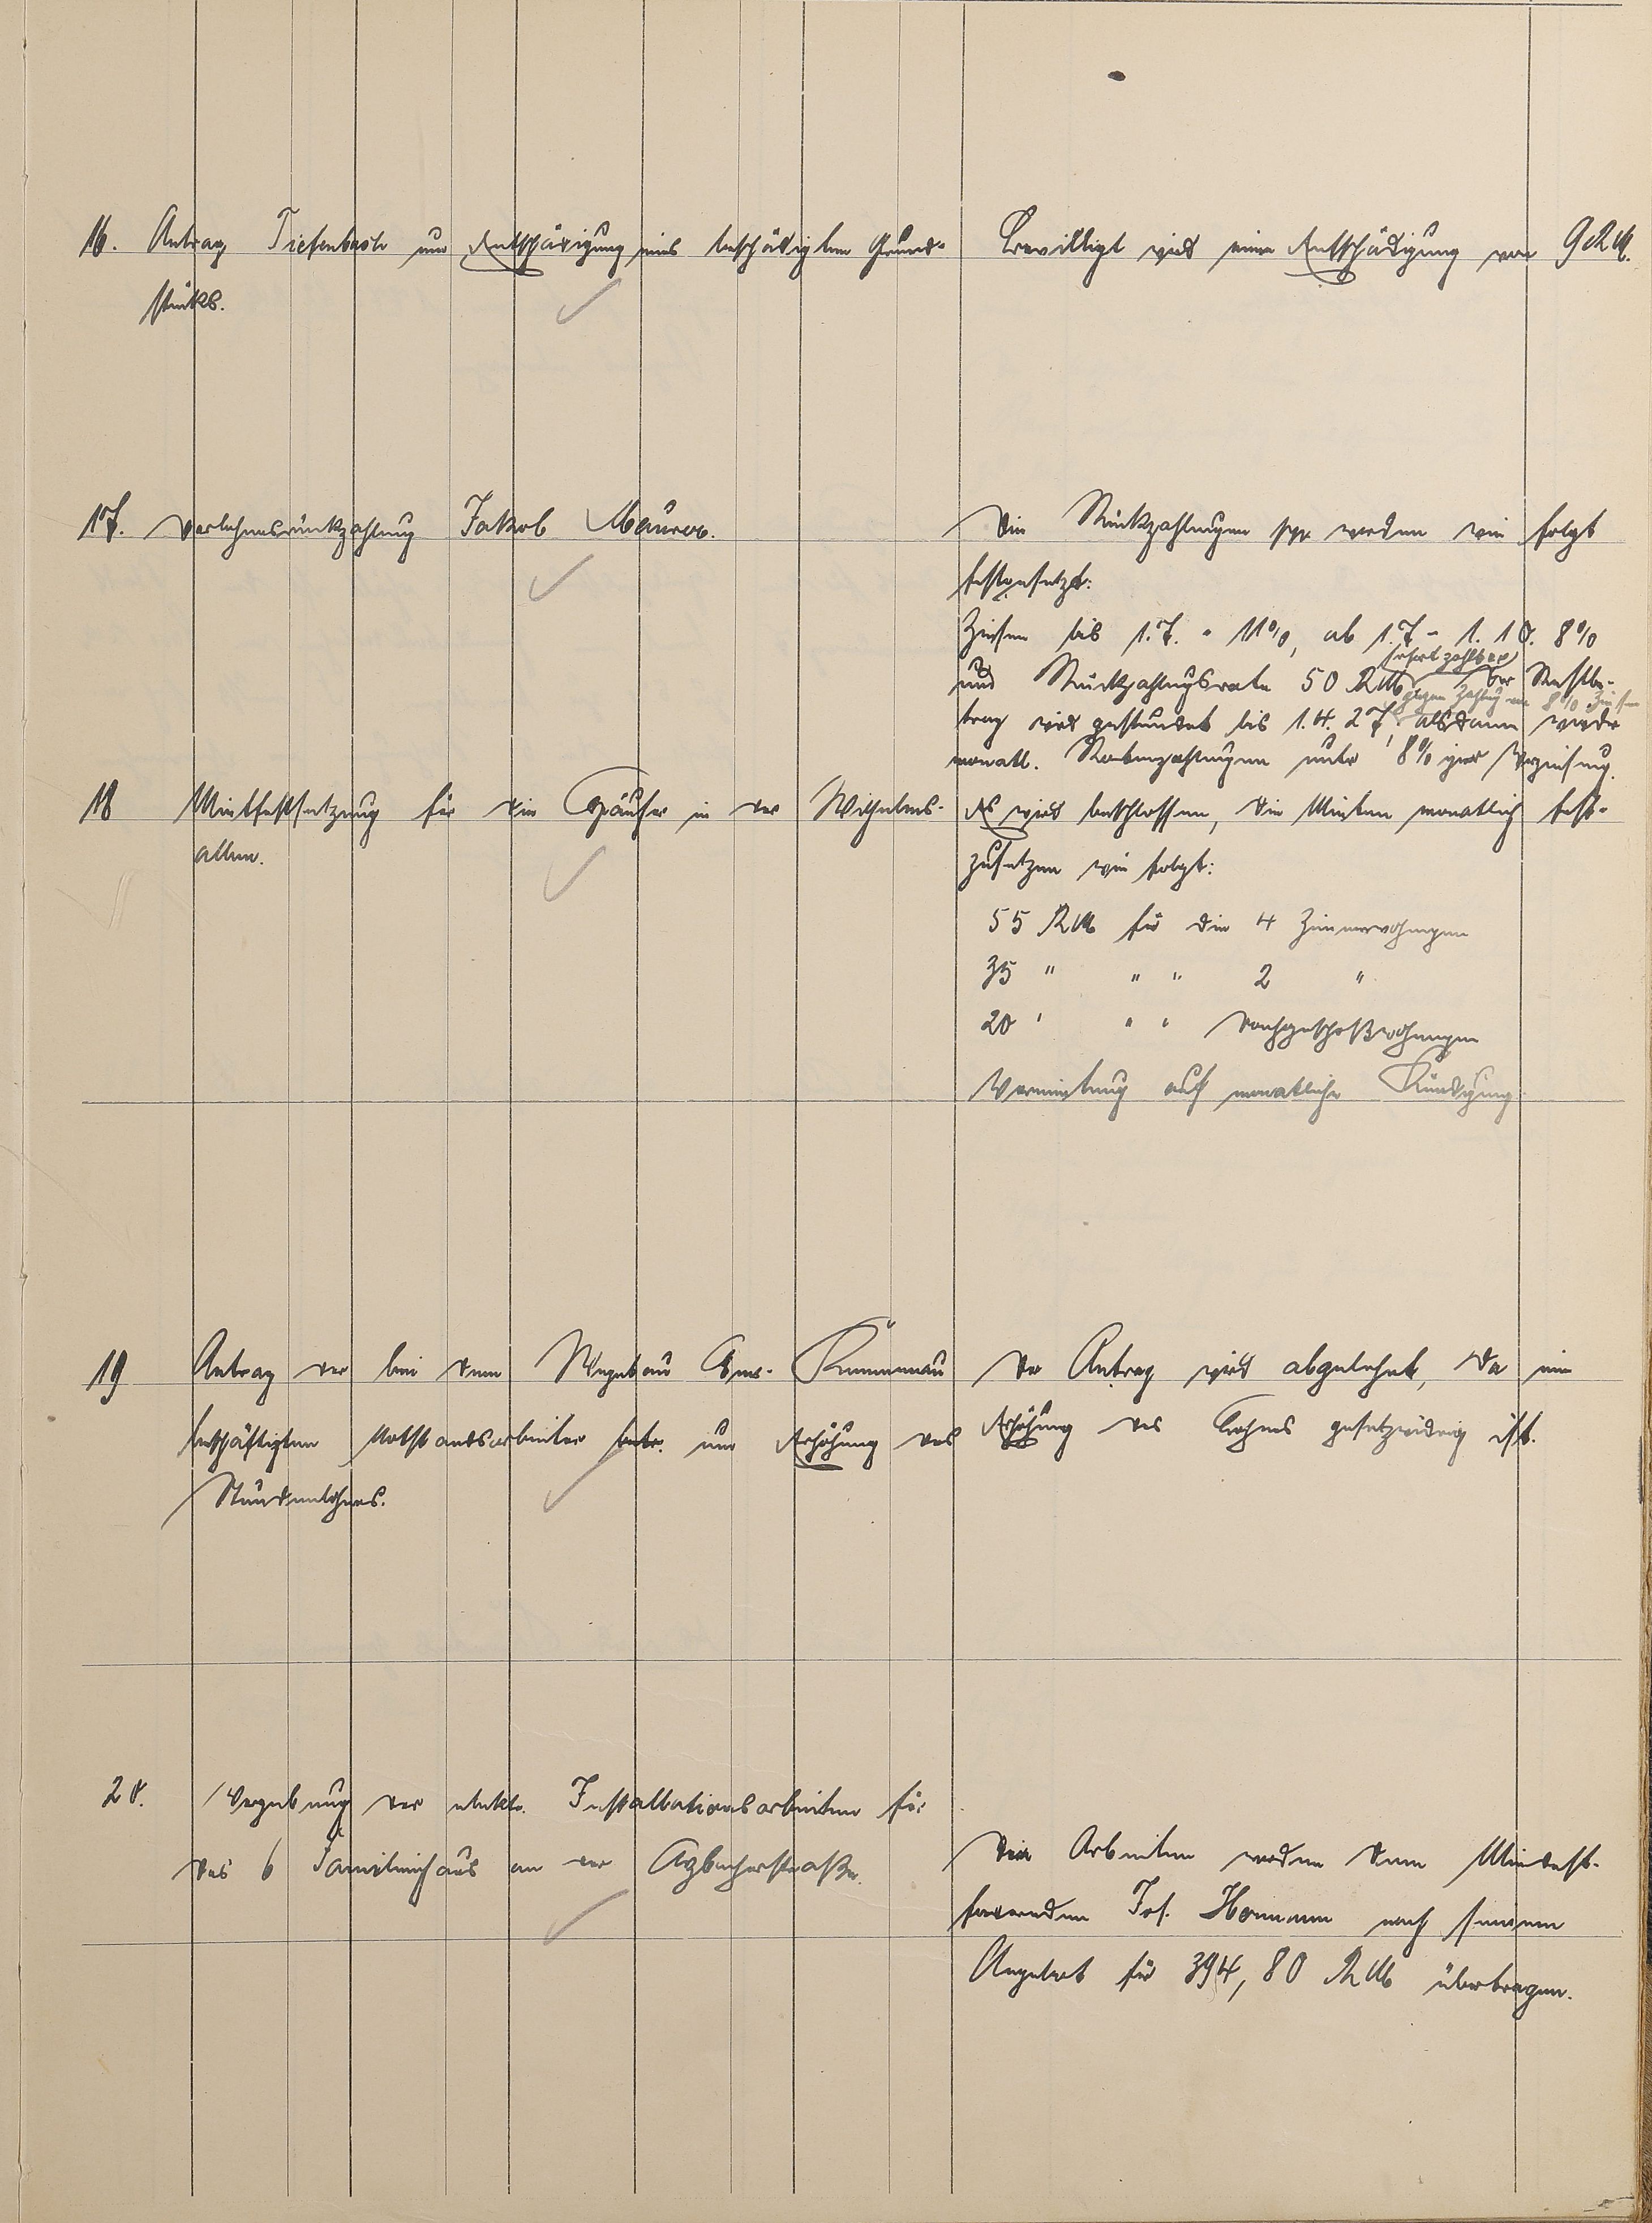 16. Antrag Tiefenbach um Entschädigung eines beschädigten Grund-
stücks.
Bewilligt wird eine Entschädigung von 9 RM.
17. Darlehnsrückzahlung Jakob Maurer.
Die Rückzahlungen werden wie folgt
festgesetzt:
Zinsen bis 1.7. 11%, ab 1.7 - 1.10. 8%
sofort zahlbar
und Rückzahlungsrate 50 RM, der Restbe-
gegen Zahlung von 8% Zinsen
trag wird gestundet bis 1.4.27, alsdann werden
monatl. Ratenzahlungen unter 8%iger Verzinsung.
18 Mietfestsetzung für die Häuser in der Wilhelms-
allee.
Es wird beschlossen, die Mieten monatlich fest-
zusetzen wie folgt:
55 RM für die 4 Zimmerwohnungen
35 " " " 2 "
20 " " " Dachgeschoßwohnungen
Vermietung auf monatliche Kündigung
19 Antrag der bei dem Wegebau Ems-Kemmenau
beschäftigten Notstandsarbeiter um Erhöhung des
Stundenlohnes.
Der Antrag wird abgelehnt, da eine
Erhöhung des Lohnes gesetzwidrig ist.
20. Vergebung der elektr. Installationsarbeiten für
das 6 Familienhaus an der Arzbacherstraße.
Die Arbeiten werden dem Mindest-
fordernden Jos. Hermann nach seinem
Angebot für 394,80 RM übertragen.